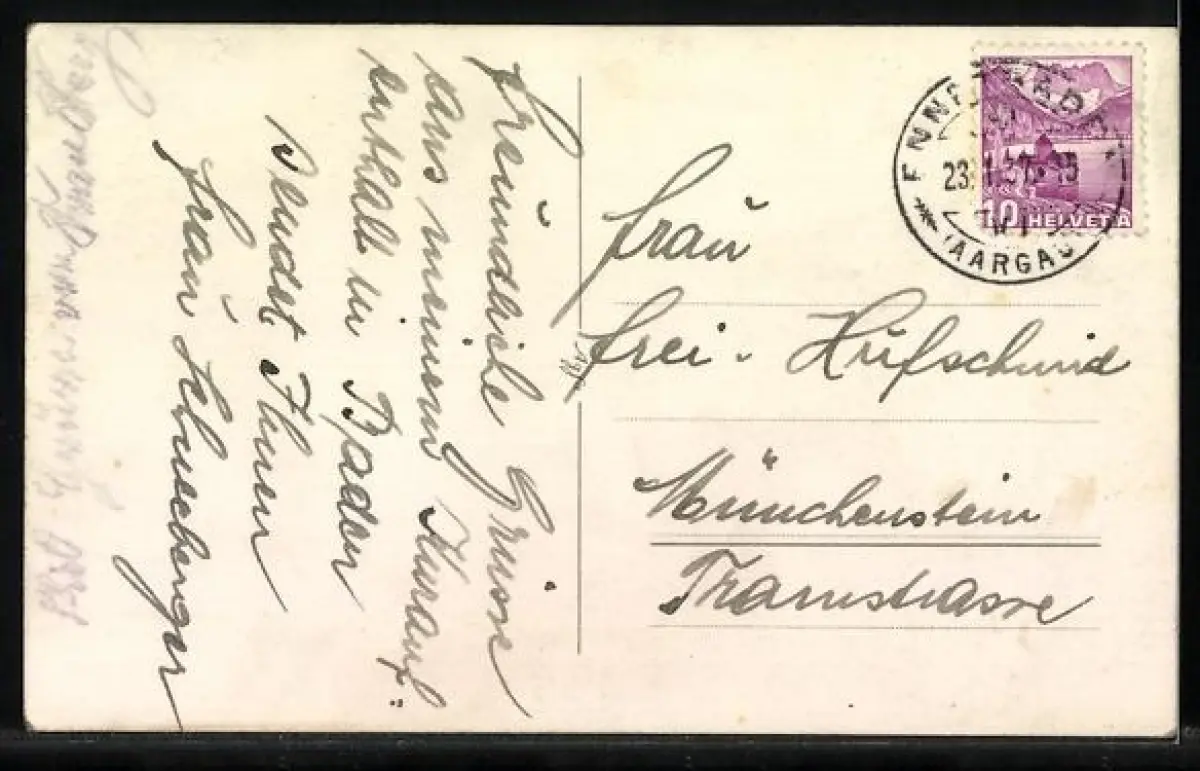 Freundliche Grüsse
aus meinem Kurauf=
enthalt in Baden
sendet Ihnen
Frau Schneeberger
Frau
Frei. Hufschmid
Münchenstein
Tramstrasse
ENNETBADEN
23.
(AARGAU)
10 HELVETIA